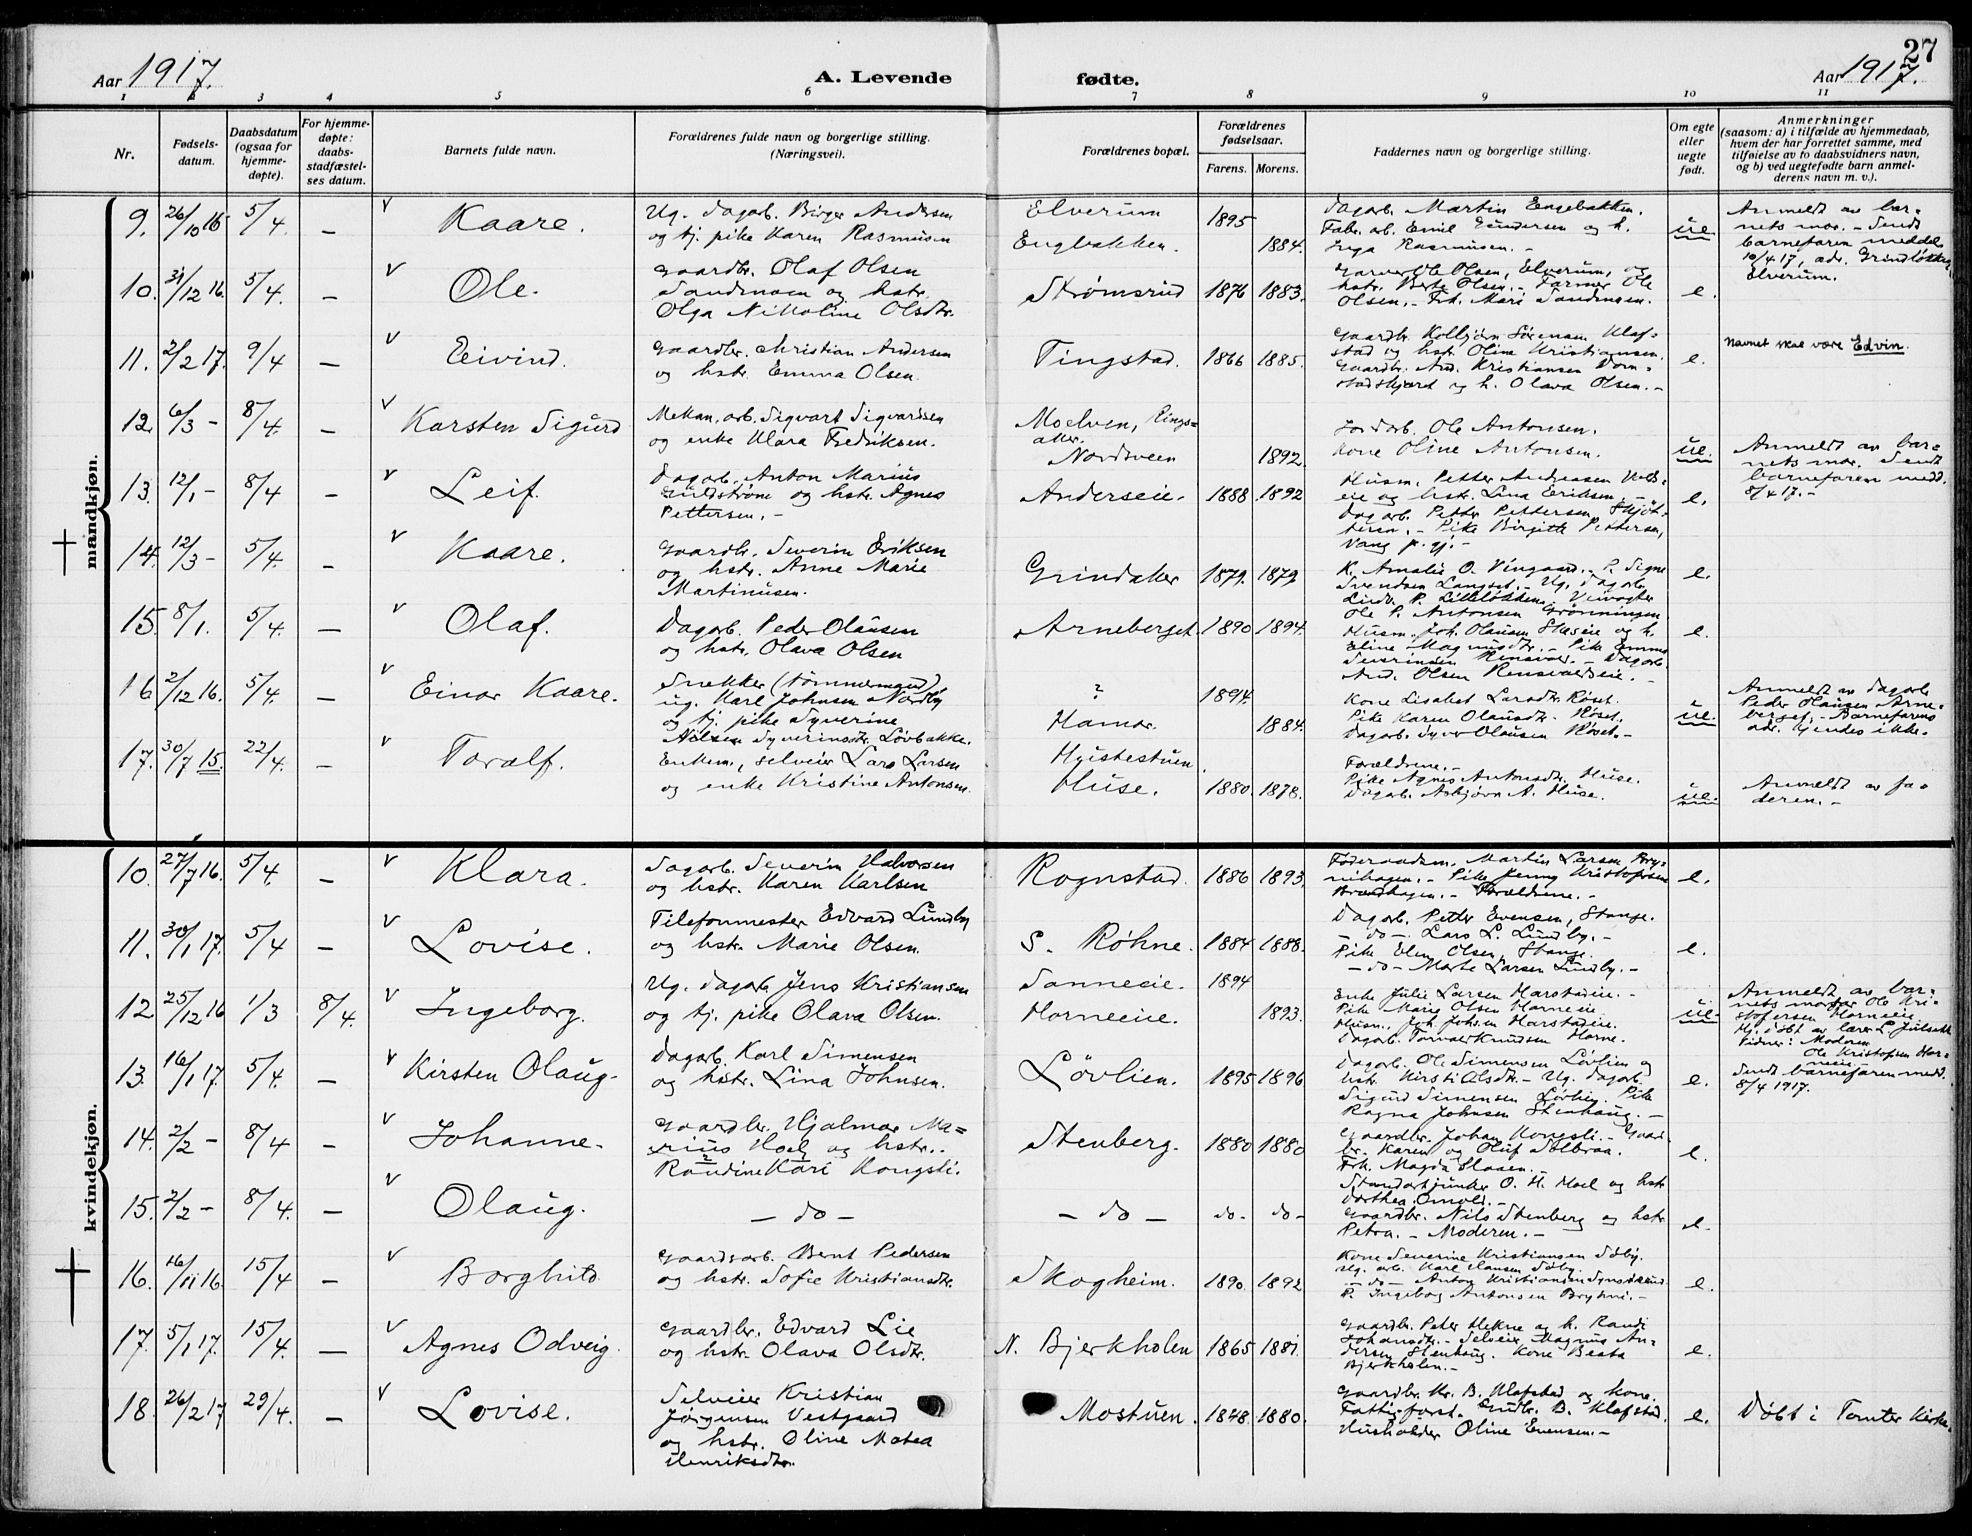 27
Aar 1917.
A. Levende fødte.
Aar 1917.
1 2 3 4 5 6 7 8 9 10 11
Nr.
Fødsels-
datum.
Daabsdatum
(ogsaa for
hjemme-
døpte).
For hjemme-
døpte:
daabs-
stadfæstel-
ses datum.
Barnets fulde navn.
Forældrenes fulde navn og borgerlige stilling.
(Næringsvei).
Forældrenes bopæl.
Forældrenes
fødselsaar.
Farens. Morens.
Faddernes navn og borgerlige stilling.
Om egte
eller
uegte
født.
Anmerkninger
(saasom: a) i tilfælde av hjemmedaab,
hvem der har forrettet samme, med
tilføielse av to daabsvidners navn,
og b) ved uegtefødte barn anmel-
derens navn m. v.).
mandkjøn.
9. 26/10 16. 5/4. – Kaare.
Ug. dagarb. Birger Andersen
og tj. pike Karen Rasmusen
Elverum 1895
Engbakken. 1884.
Dagarb. Martin Engebakken.
Fabr. arb. Emil Gundersen og h.
Inga Rasmusen. –
ue.
Anmeldt av bar-
nets mor. – Sendt
barnefaren meddel.
10/4 17, adr. Grindløkka,
Elverum.
10. 31/12 16. 5/4. – Ole.
Gaardbr. Olaf Olsen
Sandmoen og hstr.
Olga Nikoline Olsdtr.
Strømsrud 1876 1883.
Garver Ole Olsen, Elverum, og
hstr. Berte Olsen. – Farmer Ole
Olsen. – Frk. Mari Sandmoen.
e.
11. 2/2 17. 9/4 – Eivind.
Gaardbr. Christian Andersen
og hstr. Emma Olsen.
Tingstad. 1866 1885.
Gaardbr. Kolbjørn Sørensen Klaf-
stad og hstr. Oline Kristiansen.
Gaardbr. And. Kristiansen Dom-
stadskjærd og h. Olava Olsen. –
e.
Navnet skal være Edvin.
12. 6/3 – 8/4. – Karsten Sigurd
Mekan. arb. Sigvart Sigvardsen
og enke Klara Fredriksen.
Moelven, Rings-
aker.
Nordsveen 1892.
Jordarb. Ole Antonsen.
Kone Oline Antonsen.
ue.
Anmeldt av bar-
nets mor. Sendt
barnefaren medd.
8/4 17. –
13. 12/1 – 8/4. – Leif.
Dagarb. Anton Marius
Guldstrøm og hstr. Agnes
Pettersen. –
Anderseie. 1888. 1892
Husm. Petter Andreasen
eie og hstr. Lina Eriksen. –
Dagarb. Petter Pettersen,
Pike Birgitte Pettersen,
Vang p. gj. –
e.
14. 12/3 – 5/4. – Kaare.
Gaardbr. Severin Eriksen
og hstr. Anne Marie
Martinusen.
Grindaker 1879. 1879
K. Amalie O. Vingaard. – P. Signe
Svendsen Langset. – Ug. dagarb.
Lindv. P. Lilleløkken. Veivogter
Ole P. Antonsen Grønningen.
e.
15. 8/1. 5/4. – Olaf.
Dagarb. Peder Olausen
og hstr. Olava Olsen
Arneberget. 1890 1894.
Husm. Joh. Olausen Staseie og h.
Eline Magnusdtr. – Pike Emma
Severinsen – Dagarb.
And. Olsen
e.
16 2/12 16. 5/4. – Einar Kaare.
Snekker (tømmermand)
ug. Karl Johnsen Nordby
og tj. pike Syverine
Nilsen Syverinsdtr. Løvbakke.
? 1894.
Hamar. 1884.
Kone Lisabet Larsdtr. Røset.
Pike Karen Olausdtr. Røset.
Dagarb. Syver Olausen Røset. –
ue.
Anmeldt av dagarb.
Peder Olausen Arne-
berget. – Barnefarens
adr. kjendes ikke.
17. 30/7 15. 22/4. – Toralf.
Enkem., selveier Lars Larsen
og enke Kristine Antonsen.
Hyistestuen.
Huse. 1880. 1878.
Forældrene. –
Pike Agnes Antonsdtr. Huse.
Dagarb. Asbjørn A. Huse.
ue.
Anmeldt av fa-
deren. –
kvindekjøn.
10. 27/7 16. 5/4. – Klara.
Dagarb. Severin Halvorsen
og hstr. Karen Karlsen
Rognstad. 1886 1893.
Føderaadsm. Martin Larsen Bry-
nihagen. – Pike Jenny Kristofersen
Brændhagen. – Forældrene. –
e.
11. 30/1 17. 5/4 – Lovise.
Telefonmester Edvard Lundby
og hstr. Marie Olsen.
S. Røhne. 1884 1888.
Dagarb. Petter Evensen, Stange.
– do – Lars L. Lundby. –
Pike Elen Olsen, Stange.
– do – Marte Larsen Lundby. –
e.
12 25/12 16 1/3 8/4. Ingeborg.
Ug. dagarb. Jens Kristiansen
og tj. pike Olava Olsen.
Sanneeie. 1894
Horneeie. 1893.
Enke Julie Larsen Harstadeie. –
Pike Marie Olsen Horneeie
Husm. Joh. Johsen Harstadeie.
Dagarb. Torvald Knudsen Horne.
ue.
Anmeldt av bar-
nets morfar Ole Kri-
stofersen Horneeie.
Hj. døbt av lærer L. Julsett
Vidner: Moderen
Ole Kristofsen Hor-
neeie. –
Sendt barnefaren medd.
8/4 1917.
13. 16/1 17. 5/4. – Kirsten Olaug.
Dagarb. Karl Simensen
og hstr. Lina Johnsen.
Løvlien. 1895 1896
Dagarb. Ole Simensen Løvlien og
hstr. Kirsti Olsdtr. – Ug. dagarb.
Sigurd Simensen Løvlien. Pike
Ragna Johnsen Stenhaug. –
e.
14. 2/2 – 8/4 – Johanne.
Gaardbr. Hjalmar Ma-
rius Hoel og hstr.
Randine Kari Kongsli.
Stenberg. 1880 1880
Gaardbr. Johan Kongsli. – Gaard-
br. Karen og Oluf Solbraa.
Frk. Magda Slaaen. –
e.
15. 2/2 – 8/4. – Olaug.
– do –
– do –
do – do –
Standartjunker O. H. Hoel og hstr
Dorthea –
Gaardbr. Nils Stenberg og hstr
Petra. – Moderen. –
e.
16. 16/11 16. 15/4 – Borghild.
Gaardsarb. Bernt Pedersen
og hstr. Sofie Kristiansdtr.
Skogheim. 1890. 1892
Kone Severine Kristiansen Søby.
Ug. arb. Karl Hansen Søby.
– do – Anton Kristiansen
P. Ingeborg Antonsen Bryhni. –
e.
17. 5/1 17. 15/4. – Agnes Odveig.
Gaardbr. Edvard Lie
og hstr. Olava Olsdtr.
N. Bjerkholen 1865 1881.
Gaardbr. Peter Hekne og h. Randi
Johansdtr. – Selveier Magnus An-
dersen Stenhaug. Kone Beata
Bjerkholen. –
e.
18. 26/2 17 29/4. – Lovise.
Selveier Kristian
Jørgensen Vestgaard
og hstr. Oline Matea
Henriksdtr.
Mostuen. 1848. 1880.
Gaardbr. Kr. B. Klafstad og kone.
Fattigforst. Gudbr. B. Klafstad.
Husholder Oline Evensen. –
e.
Døbt i Tomter Kirke.